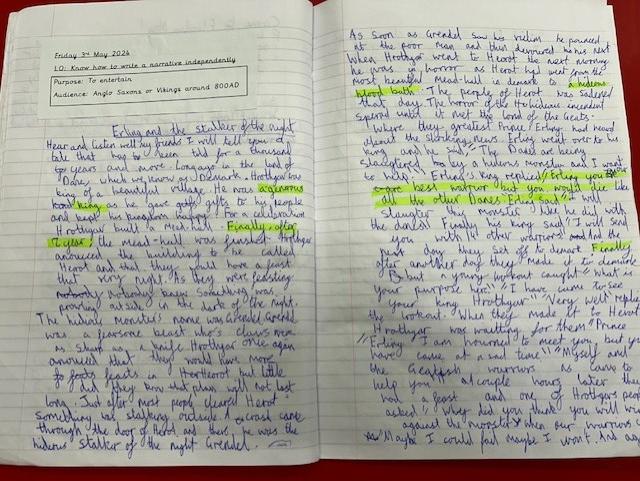 Friday 3rd May 2024
LO: Know how to write a narrative independently
Purpose: To entertain
Audience: Anglo Saxons or Vikings around 800AD
Erling and the stalker of the night
Hear and listen well my friends I will tell you a
tale that has been told for a thousand
years and more. Long ago in the land of
Danes which is now Denmark. Hrothgar was
king of a beautiful village. He was a generous
king as he gave gifts to his people
and kept his kingdom happy. For a celebration
Hrothgar built a Mead-hall. Finally, after
1 year, the mead-hall was finished. Hrothgar
anounced the building to be called
Herot and that they would have a feast
that very night. As they were feasting
nobody knew something was
prowling outside in the dark of the night.
The hideous monster's name was Grendel. Grendel
was a fearsome beast who's claws were
as sharp as a knife. Hrothgar once again
anounced that they would have more
feasts in Herot but little
did they know that plan will not last
long. Just after most people Herot
something was stalking outside. A crash came
through the door of Herot and there he was the
hideous stalker of the night Grendel.
As soon as Grendel saw his victim he pounced
at the poor man and thus devoured he his next
When Hrothgar went to Herot the next morning
he was in horror as Herot had went from the
most beautiful mead-hall in demark to a hideous
blood bath. The people of Herot was
that day. The horror of the hideous incendent
until it met the land of the Geats.
Where they greatest Prince Erling had heard
about the news. Erling went over to his
king and he said "Danes are being
by a hideous monster and I want
to help" Erling's king replied "Erling you
are best warrior but you would die like
all the other Danes. Erling said "I will
this monster like he did with
the danes! Finally his king said "I will send
you with 14 other warriors And the
next day they set off to demark. Finally
after another day they made it to demark
but a young lookout caught "What is
your purpose here" "I have come to see
your king Hrothgar" "Very well" replied
the lookout. When they made it to Herot
Hrothgar was waiting for them "Prince
Erling I am hounred to meet you but you
have came at a sad time" "Myself and
the Geatish warriors as came to
help you" a couple hours later they
had a feast and one of Hrothgars people
asked "Why did you think you will win
against the monster when our warriors
"Maybe I could fail maybe I wont. And